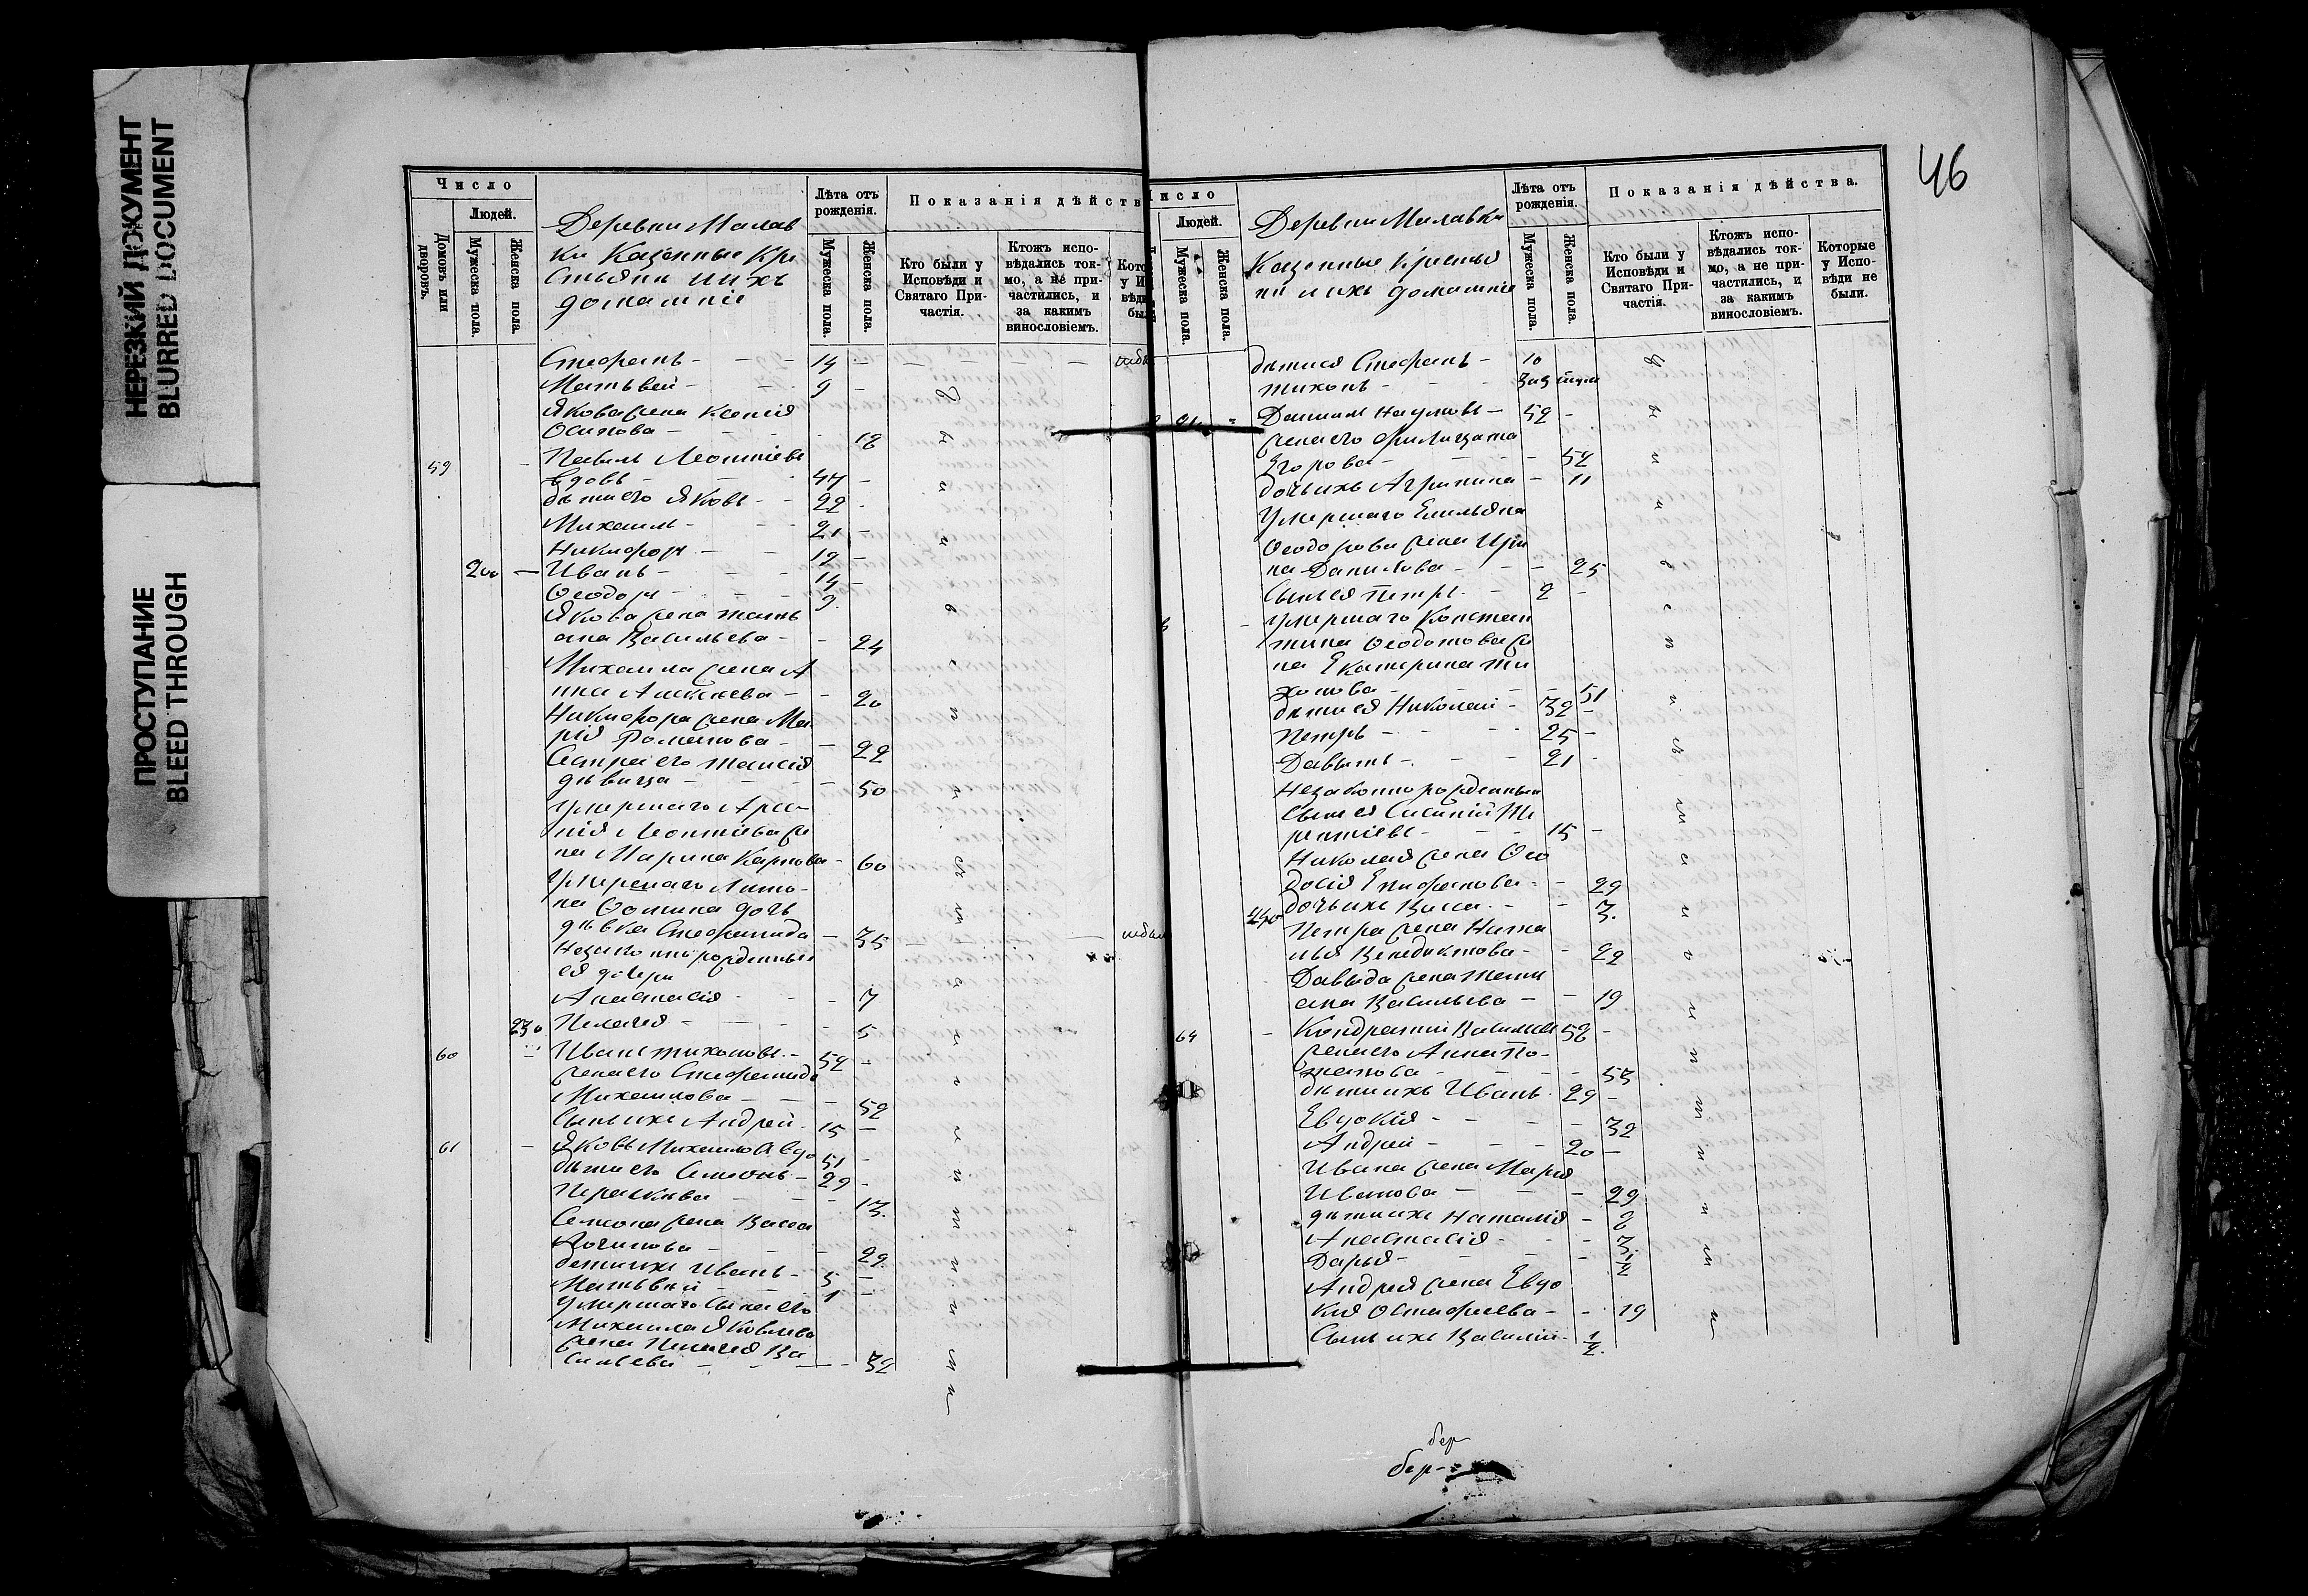 НЕРЕЗКИЙ ДОКУМЕНТ
BLURRED DOCUMENT
ПРОСТУПАНИЕ
BLEED THROUGH
Число
Людей.
Домовъ или дворовъ.
Мужеска пола.
Женска пола.
Деревни Малав
ки Казенные Кре
стьяне и ихъ
домашніе
Лѣта отъ рожденія.
Мужеска пола.
Женска пола.
Показанія дѣйств
Кто были у Исповѣди и Святаго При-частія.
Ктожъ испо-вѣдались ток-мо, а не при-частились, и за какимъ винословіемъ.
Стефанъ - 14 -
Матьвей - 9 -
Якова жена Ксенія
Осипова - 18
59 Павелъ Леонтіевъ
вдовъ - 47 -
дѣти его Яковъ - 22
Михаилъ - 21 -
Никифоръ - 19 -
200 Иванъ - 14 -
Ѳеодоръ - 9
Якова жена Тать
яна Васильева - 24
Михаила жена А
нна Алексѣева - 20
Никифора жена Ма
рія Романова - 22
Сестра его Таисія
дѣвица - 50
умершаго
нія Леонтіева же
на Марина Карпова - 60
Умершаго
на Ѳомина дочь
дѣвка Стефанида - 35
Незаконнорожденныя
ея дочери
Анастасія - 7
230 Пелагея - 5
60 Иванъ Тихоновъ - 54 -
жена его Стефанида
Михаилова - 52
Сынъ ихъ Андрей - 15 -
61 Яковъ Михаиловъ вдо 51 -
дѣти его Семионъ - 29 -
Парасковья - 13
Семиона жена Васса
Логинова - 29
дѣти ихъ Иванъ - 5 -
Матьвѣй - 1 -
умершаго сына его
Михаила Яковлева
жена Пелагея Ва
сильева - 32
46
Число
Людей.
Мужеска пола.
Женска пола.
Деревни Малавки
Казенные крестья
не и ихъ домашніе
Лѣта отъ рожденія.
Мужеска пола.
Женска пола.
Показанія дѣйства.
Кто были у Исповѣди и Святаго При-частія.
Ктожъ испо-вѣдались ток-мо, а не при-частились, и за какимъ винословіемъ.
Которые у Испо-вѣди не были.
дѣти ея Стефанъ - 10
Тихонъ -
Даниилъ Наумовъ - 52 -
жена его Филицата
Егорова - 54
дочь ихъ Агрипина - 11
Умершаго Емильяна
Ѳеодорова жена Ири
на Данилова - 25
Сынъ ея Петръ - 2 -
умершаго Констан
тина Ѳеодотова же
на Екатерина Ти
хонова - 51
дѣти ея Николай - 32 -
Петръ - 25 -
Давыдъ - 21 -
Незаконнорожденный
сынъ ея
рентіевъ - 15 -
Николая жена Ѳео
досія Епифанова - 29
240 дочь ихъ Васса - 3
Петра жена Ната
лья Венедиктова - 22
Давыда жена Тать
яна Васильева - 19
64 Кондратій Васильев 58 -
жена его Анна По-
тапова - 55
дѣти ихъ Иванъ - 29 -
Евдокія - 32
Андрей - 20 -
Ивана жена Марія
Иванова - 29
дѣти ихъ Наталія - 8
Анастасія - 3
Дарья - 1/2
Андрея жена Евдо
кія Остафіева - 19
Сынъ ихъ Василій - 1/2
бер
бер-